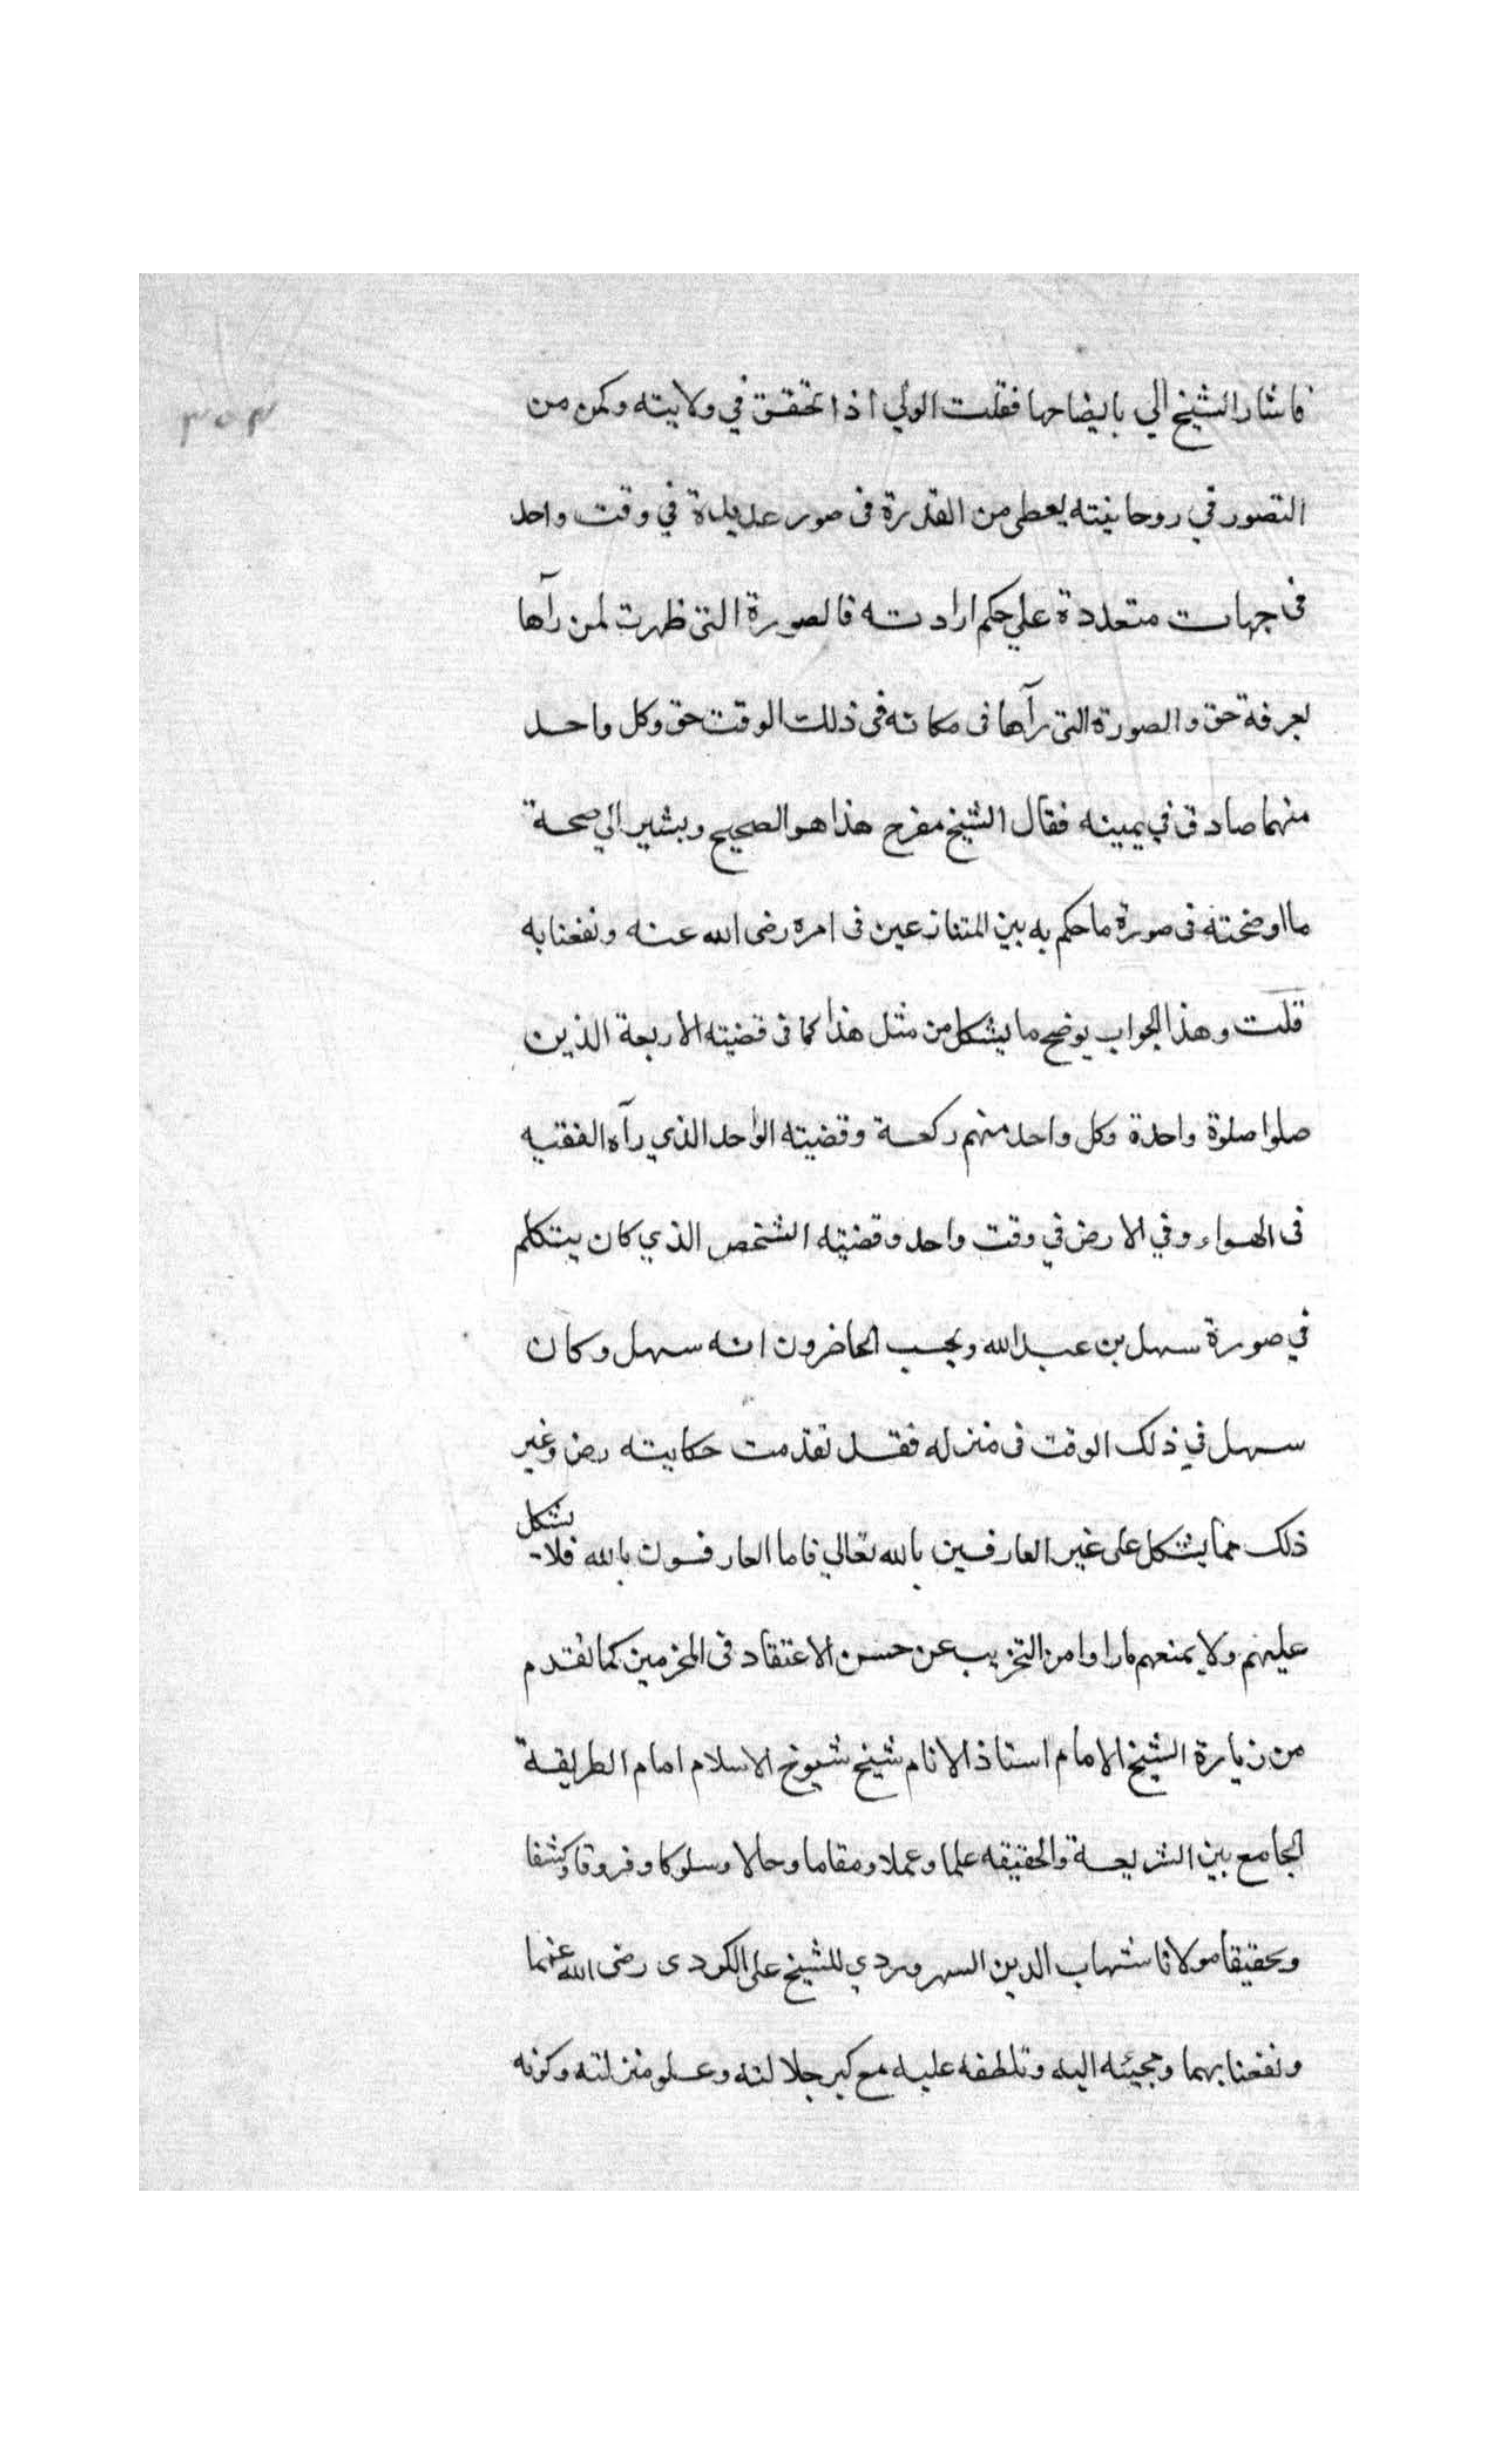 ٣٥٣
فاشار الشيخ الي بايضاحها فقلت الولي اذا تحقق في ولايته وكمن من
التصور في روحانيته يعطى من القدرة فى صور عديدة في وقت واحد
فى جهات متعددة علي حكم ارادته فالصورة التى ظهرت لمن رآها
بعرفة حق والصورة التى رآها فى مكانه فى ذلك الوقت حق وكل واحد
منهما صادق في يمينه فقال الشيخ مفرح هذا هو الصحيح ويشير الي صحة
ما اوضحته فى صورة ما حكم به بين المتنازعين فى امره رضى الله عنه ونفعنا به
قلت وهذا الجواب يوضح ما يشكل من مثل هذا كما فى قضيته الاربعة الذين
صلوا صلوة واحدة وكل واحد منهم ركعة وقضيته الواحد الذي رآه الفقيه
فى الهواء وفي الارض في وقت واحد وقضيته الشخص الذي كان يتكلم
في صورة سهل بن عبد الله ويحسب الحاضرون انه سهل وكان
سهل في ذلك الوقت فى منزله فقد تقدمت حكايته رض وغير
ذلك مما يشكل على غير العارفين بالله تعالي فاما العارفون بالله فلا يشكل
عليهم ولا يمنعهم ما راوا من التخريب عن حسن الاعتقاد فى المخرمين كما تقدم
من زيارة الشيخ الامام استاذ الانام شيخ شيوخ الاسلام امام الطريقة
الجامع بين الشريعة والحقيقه علما وعملا ومقاما وحالا وسلوكا وفروقا وكشفا
وتحقيقا مولانا شهاب الدين السهروردي للشيخ على الكودى رضى الله عنهما
ونفعنا بهما ومجيئه اليه وتلطفه عليه مع كبر جلالته وعلو منزلته وكونه